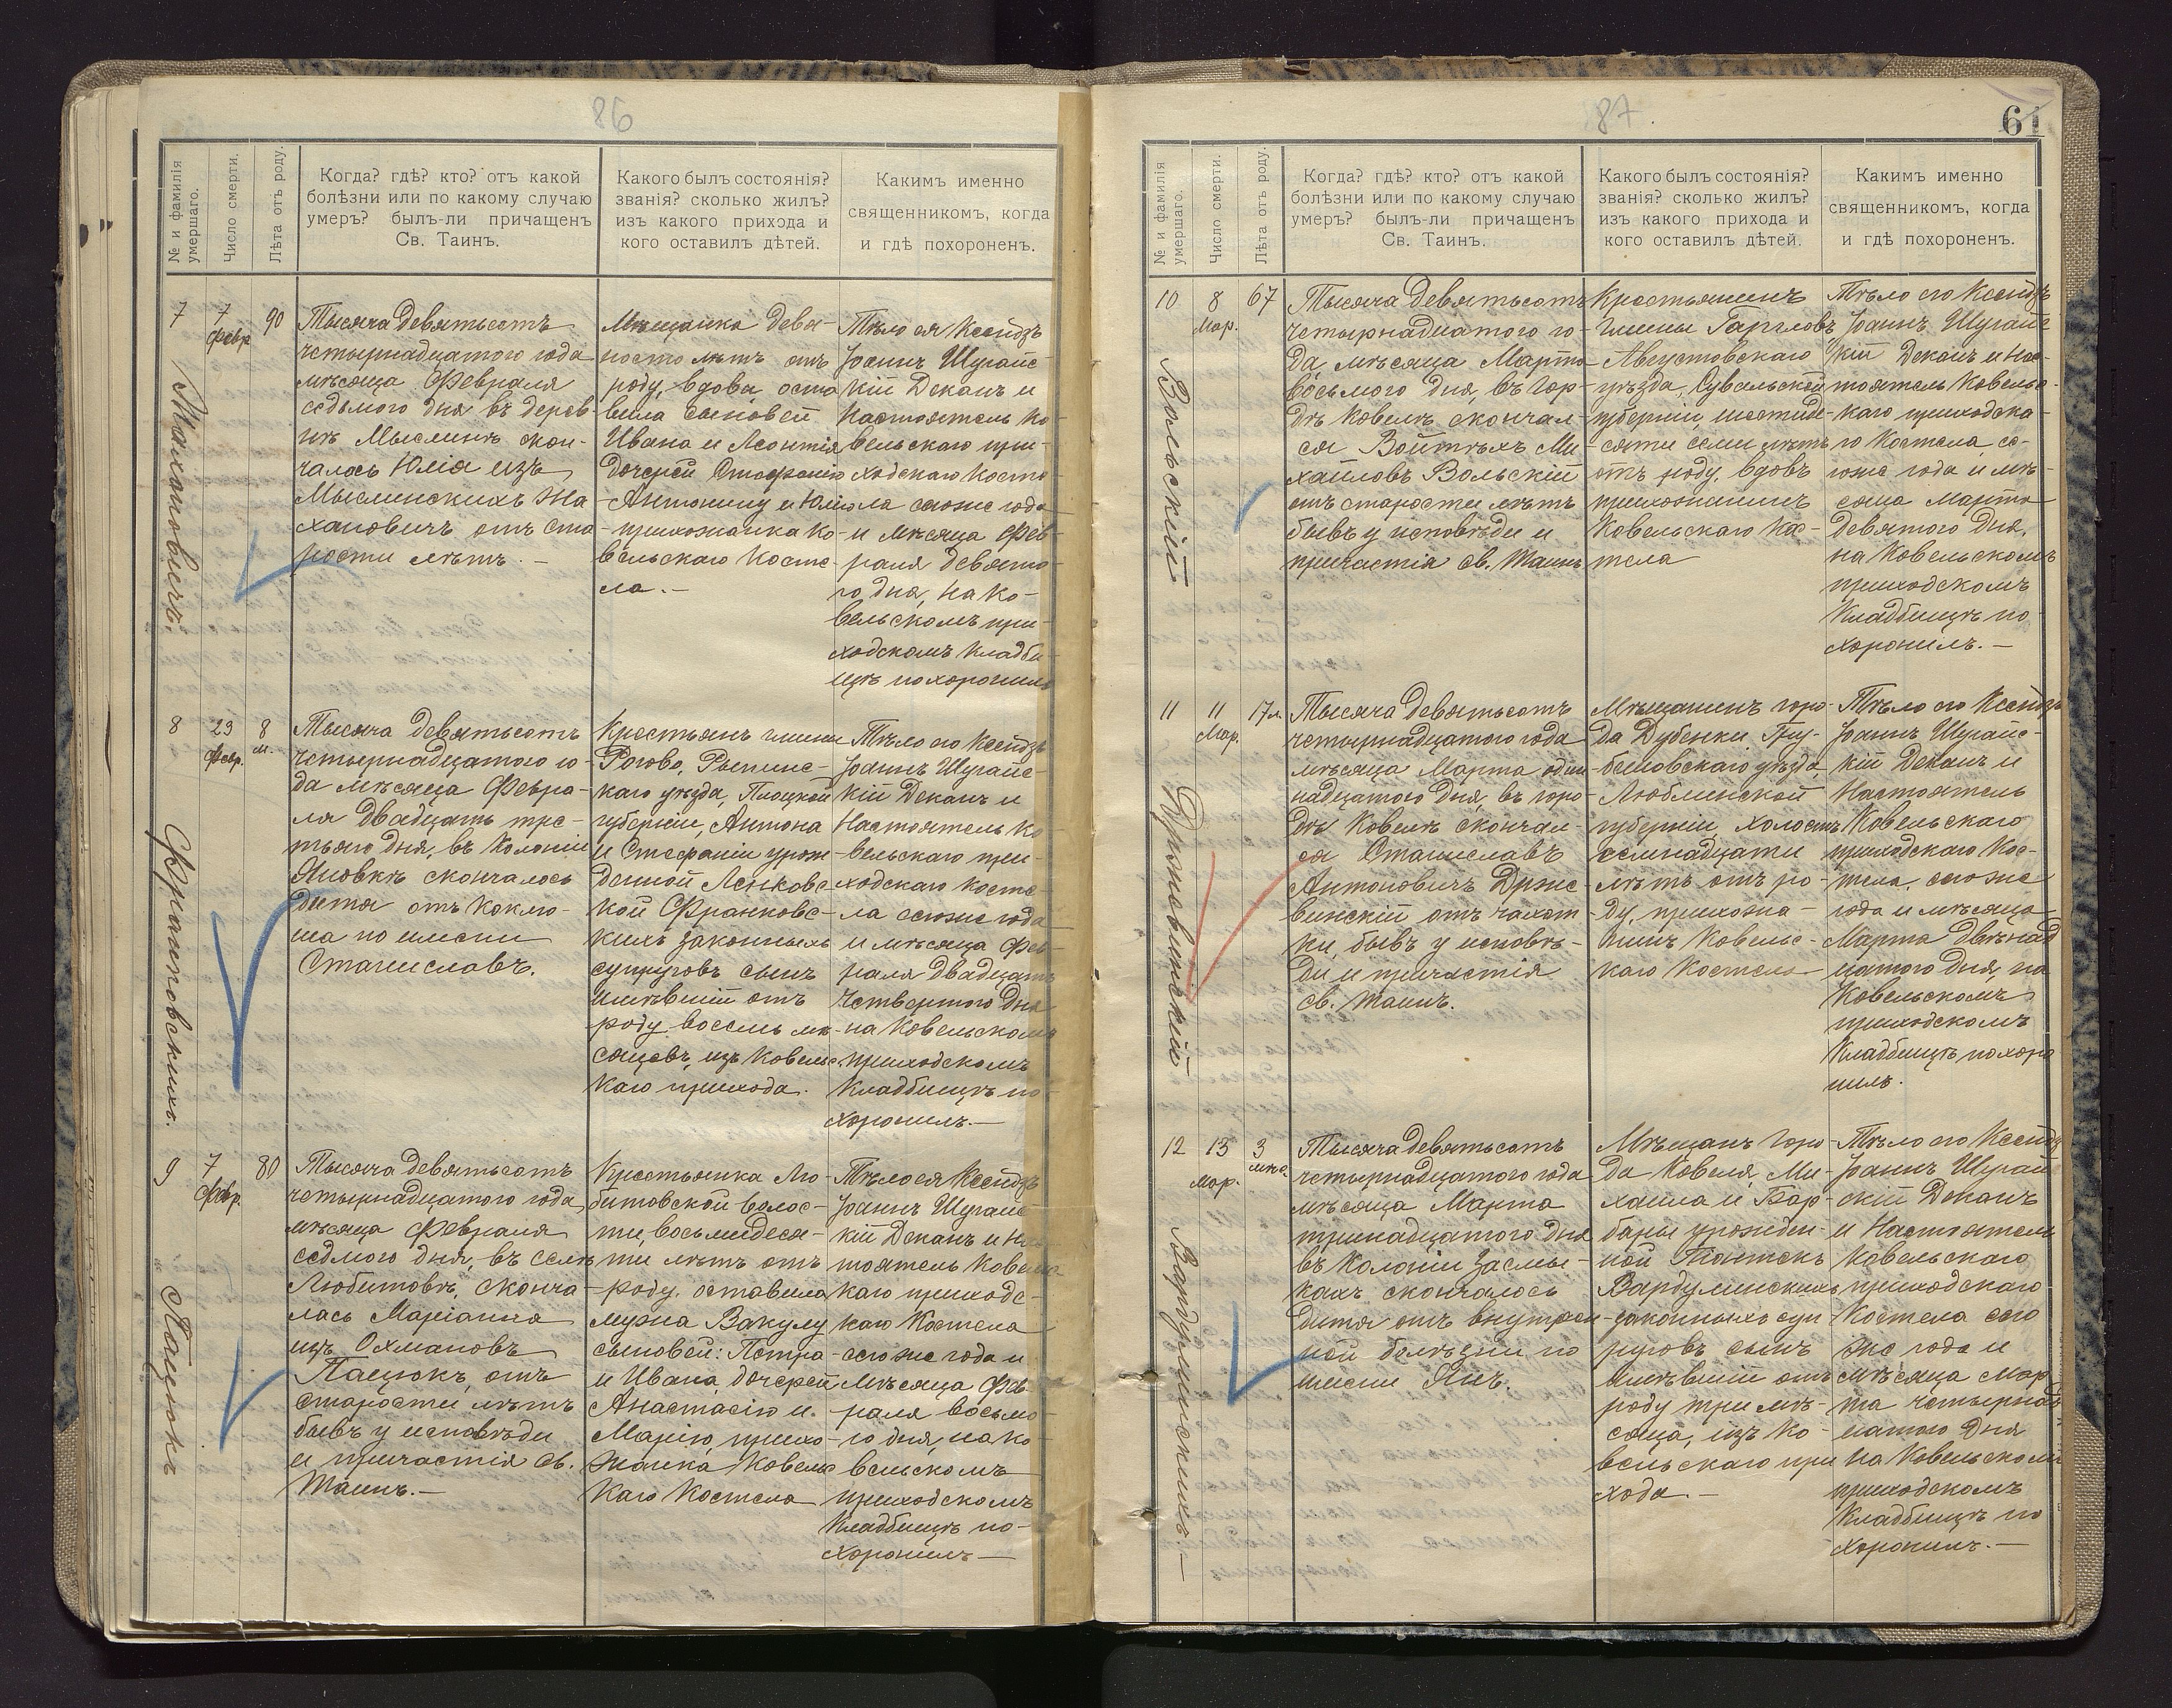 86
№ и фамилія умершаго.
Число смерти.
Лѣта отъ роду.
Когда? гдѣ? кто? отъ какой
болѣзни или по какому случаю
умеръ? былъ-ли причащенъ
Св. Таинъ.
Какого былъ состоянія?
званія? сколько жилъ?
изъ какого прихода и
кого оставилъ дѣтей.
Какимъ именно
священникомъ, когда
и гдѣ похороненъ.
7
Жахановичъ.
7
февр
90
Тысяча девятьсотъ
четырнадцатого года
мѣсяца Февраля
седьмого дня въ дерев-
нѣ Мыслинѣ скон-
чалась Юлія изъ
Мыслинскихъ Жа
хановичъ отъ ста
рости лѣтъ. –
Мѣщанка девя-
носто лѣтъ отъ
роду, вдова, оста
вила сыновей
Ивана и Леонтія
дочерей Стефанію
Антонину и Юлію
прихожанка Ко-
вельскаго Косте-
ла. –
Тѣло ея Ксендзъ
Іоаннъ Шугайс-
кій Деканъ и
Настоятель Ко
вельскаго при-
ходскаго Косте-
ла сегоже года
и мѣсяца Фев-
раля девято-
го дня, на Ко-
вельскомъ при-
ходскомъ кладби-
щѣ похоронилъ
8
Франковскихъ.
23
Февр.
8
м.
Тысяча девятьсотъ
четырнадцатого го-
да мѣсяца Февра-
ля двадцать тре-
тьяго дня, въ Колоніи
Яновкѣ скончалось
дитя отъ коклю-
ша по имени
Станиславъ.
Крестьянъ гмины
Рогово, Рыпинс-
каго уѣзда, Плоцкой
губерніи, Антона
и Стефаніи урож
денной Ленковс
кой Франковс-
кихъ законныхъ
супруговъ сынъ
имѣвшій отъ
роду восемь мѣ-
сяцевъ, изъ Ковельс
каго прихода.
Тѣло его Ксендзъ
Іоаннъ Шугайс-
кій Деканъ и
Настоятель Ко
вельскаго при-
ходскаго Косте
ла сегоже года
и мѣсяца Фев
раля двадцать
четвертого дня
на Ковельскомъ
приходскомъ
кладбищѣ по
хоронилъ. –
9
Пацюкъ
7
Февр.
80
Тысяча девятьсотъ
четырнадцатого года,
мѣсяца Февраля
седмого дня, въ селѣ
Любитовѣ, сконча
лась Маріанна
изъ Охмановъ
Пацюкъ, отъ
старости лѣтъ
бывъ у исповѣди
и причастія Св.
Таинъ. –
Крестьянка Лю-
битовской волос-
ти, восьмидеся-
ти лѣтъ отъ
роду, оставила
мужа Вакулу
сыновей: Петра-
и Ивана, дочерей
Анастасію и
Марію, прихо-
жанка Ковельс
каго Костела
Тѣло ея Ксендзъ
Іоаннъ Шугайс
кій Деканъ и На
стоятель Ковельс
каго приходс-
каго Костела
сегоже года и
мѣсяца Фев
раля восьмо-
го дня, на Ко-
вельскомъ
приходскомъ
кладбищѣ по-
хоронилъ –
87
61
№ и фамилія умершаго.
Число смерти.
Лѣта отъ роду.
Когда? гдѣ? кто? отъ какой
болѣзни или по какому случаю
умеръ? былъ-ли причащенъ
Св. Таинъ.
Какого былъ состоянія?
званія? сколько жилъ?
изъ какого прихода и
кого оставилъ дѣтей.
Какимъ именно
священникомъ, когда
и гдѣ похороненъ.
10
Вольскій
8
Мар.
67
Тысяча девятьсотъ
четырнадцатого го-
да, мѣсяца Марта
восьмого дня, въ гор-
дѣ Ковелѣ скончал
ся Войтѣхъ Ми-
хайловъ Вольскій
отъ старости лѣтъ
бывъ у исповѣди и
причастія Св. Таинъ
Крестьянинъ
гмины
Августовскаго
уѣзда, Сувальской
губерніи, шестиде-
сяти семи лѣтъ
отъ роду, вдовъ
прихожанинъ
Ковельскаго Кос-
тела
Тѣло его Ксендзъ
Іоаннъ Шугайс
кій Деканъ и Нас-
тоятель Ковельс-
каго приходска-
го Костела, се-
гоже года и мѣ-
сяца Марта
девятого дня,
на Ковельскомъ
приходскомъ
кладбищѣ по
хоронилъ. –
11
Држевинскій
11
Мар.
17 л.
Тысяча девятьсотъ
четырнадцатого года
мѣсяца Марта оди-
надцатого дня, въ горо-
дѣ Ковелѣ скончал-
ся Станиславъ
Антоновичъ Држе-
винскій отъ чахот-
ки, бывъ у исповѣ-
ди и причастія
Св. Таинъ.
Мѣщанинъ горо-
да Дубенки Гру-
бешовскаго уѣзда,
Люблинской
губерніи, холостъ
семнадцати
лѣтъ отъ ро-
ду, прихожа-
нинъ Ковельс-
каго Костела
Тѣло его Ксендзъ
Іоаннъ Шугайс-
кій Деканъ и
Настоятель
Ковельскаго
приходскаго Кос-
тела, сегоже
года и мѣсяца
Марта двѣнад
цатого дня, на
Ковельскомъ
приходскомъ
кладбищѣ похоро
нилъ.
12
Вардулинскихъ. –
13
Мар.
3
мѣс.
Тысяча девятьсотъ
четырнадцатого года
мѣсяца Марта
тринадцатого дня
въ Колоніи Засмы-
кахъ скончалось
дитя отъ внутрен-
ней болѣзни по
имени Янъ.
Мѣщанъ горо-
да Ковеля, Ми-
хаила и Вар-
бары урожден-
ной
Вардулинскихъ
законныхъ суп
руговъ сынъ
имѣвшій отъ
роду три мѣ-
сяца, изъ Ко-
вельскаго при
хода. –
Тѣло его Ксендзъ
Іоаннъ Шугай
скій Деканъ
и Настоятель
Ковельскаго
приходскаго
Костела сего
же года и
мѣсяца Мар
та четырнад
цатого дня
на Ковельскомъ
приходскомъ
кладбищѣ по
хоронилъ. –